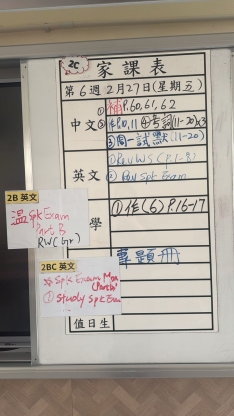 2C
家課表
第6週 2月27日(星期五)
中文
①補P.60,61,62
②作P.10,11 ④考詞(11-20)x3
③周一試默(11-20)
英文
①Rev WS (P.1-8)
② Spk Exam
2B 英文
温 Spk Exam
Part B
RWC(Gr)
學
①作(6) P.16-17
2BC 英文
Spk Exam Mon
(Part A)
① Study Spk Exam
專題冊
值日生